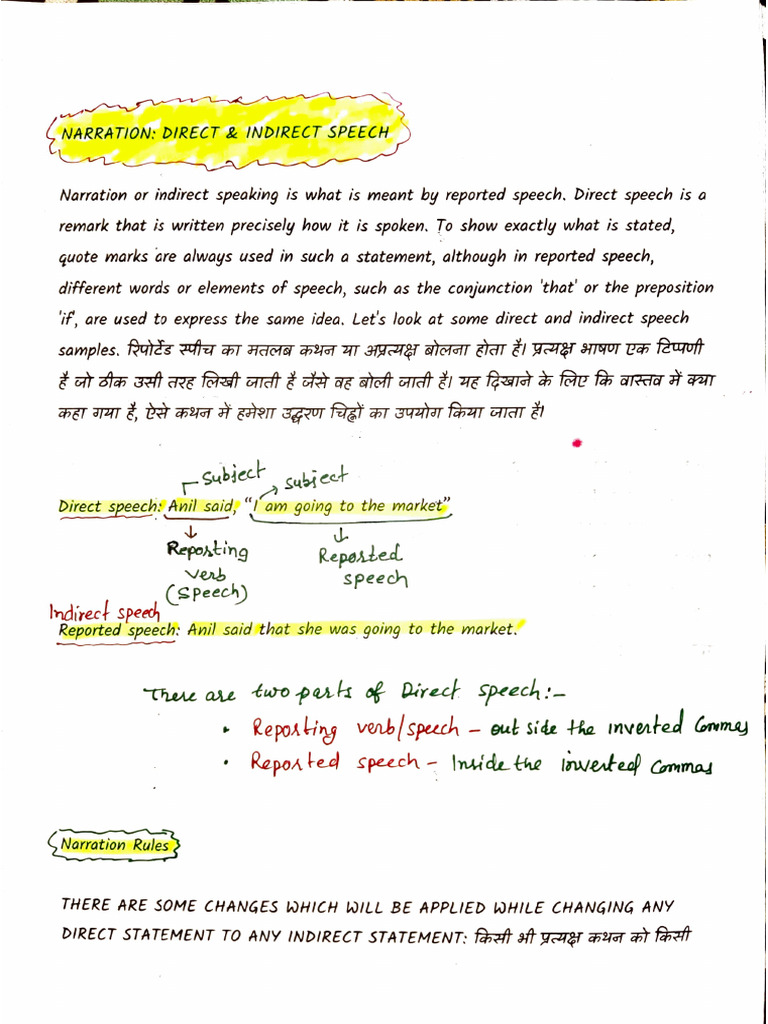 NARRATION: DIRECT & INDIRECT SPEECH
Narration or indirect speaking is what is meant by reported speech. Direct speech is a
remark that is written precisely how it is spoken. To show exactly what is stated,
quote marks are always used in such a statement, although in reported speech,
different words or elements of speech, such as the conjunction 'that' or the preposition
'if', are used to express the same idea. Let's look at some direct and indirect speech
samples. रिपोर्टेड स्पीच का मतलब कथन या अप्रत्यक्ष बोलना होता है। प्रत्यक्ष भाषण एक टिप्पणी
है जो ठीक उसी तरह लिखी जाती है जैसे वह बोली जाती है। यह दिखाने के लिए कि वास्तव में क्या
कहा गया है, ऐसे कथन में हमेशा उद्धरण चिह्नों का उपयोग किया जाता है।
Subject subject
Direct speech: Anil said, “I am going to the market”
Reporting Reported
verb speech
(Speech)
Indirect speech
Reported speech: Anil said that she was going to the market.
There are two parts of Direct speech:-
• Reporting verb/speech - out side the inverted Commas
• Reported speech - Inside the inverted Commas
Narration Rules
THERE ARE SOME CHANGES WHICH WILL BE APPLIED WHILE CHANGING ANY
DIRECT STATEMENT TO ANY INDIRECT STATEMENT: किसी भी प्रत्यक्ष कथन को किसी